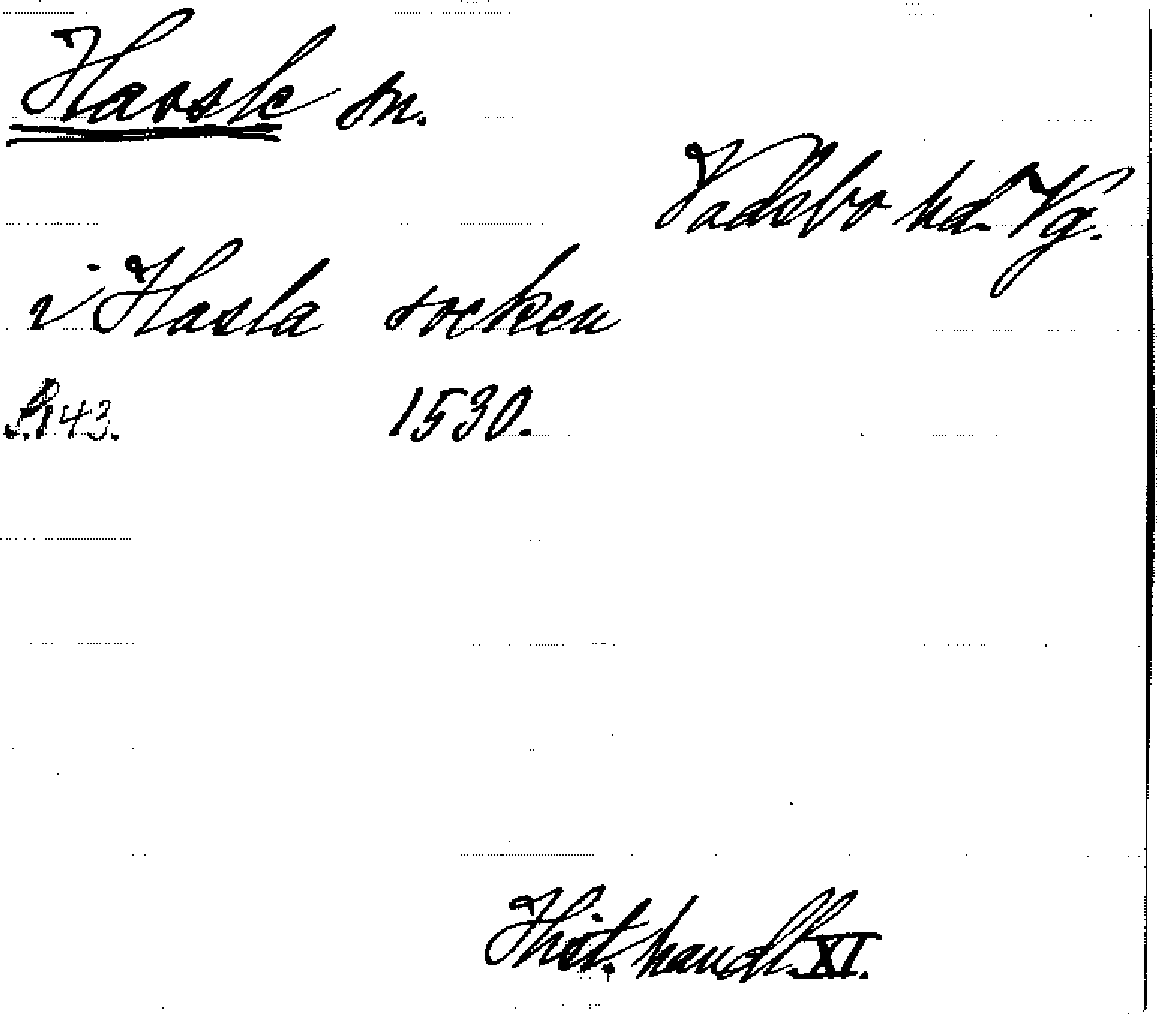 Havsle sn.
Vadsbo hd. Vg.
i Hasla socken
S. 143. 1530.
Hist. handl. XI.